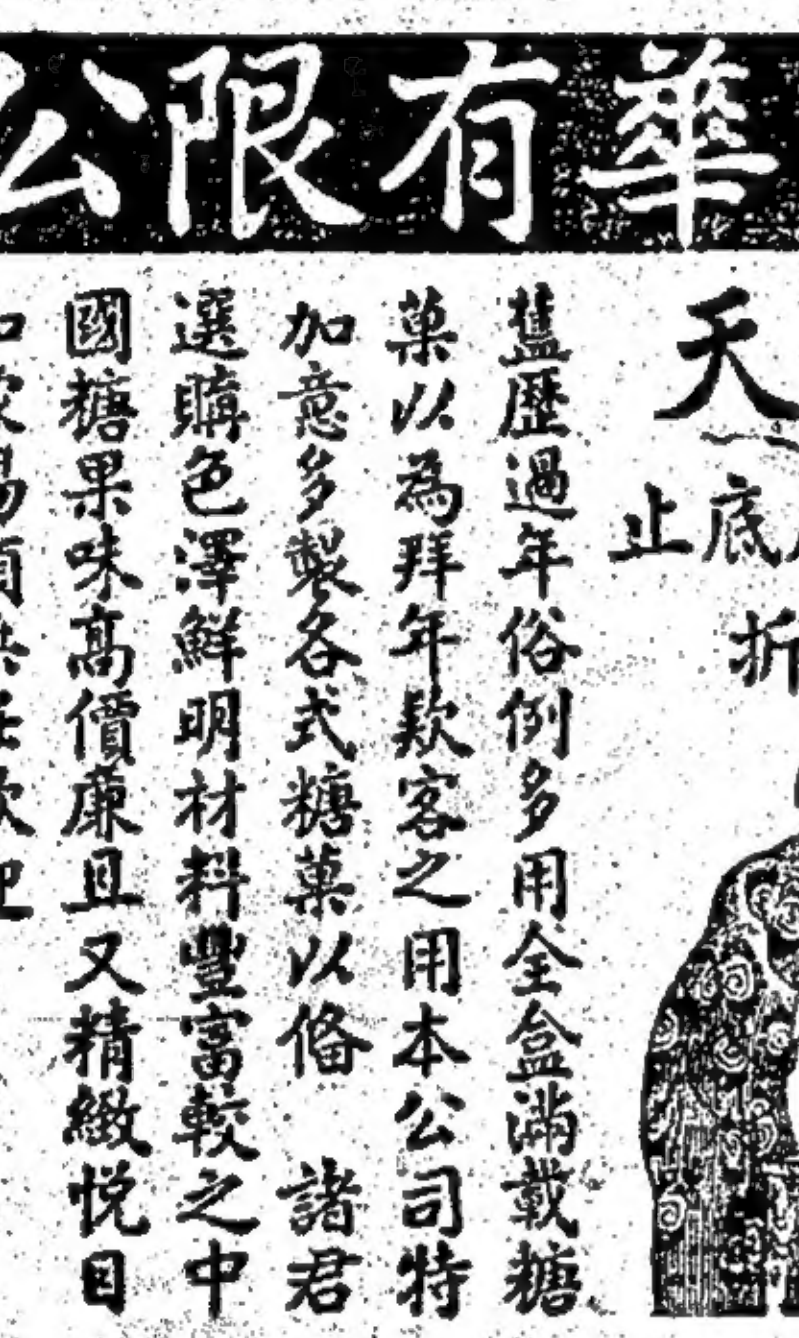 華有限公
天
底止
折
舊歷過年俗例多用全盒滿載糖
菓以為拜年欵客之用本公司特
加意多製各式糖菓以俻　諸君
選購色澤鮮明材料豐富較之中
國糖果味高價廉且又精緻悅目